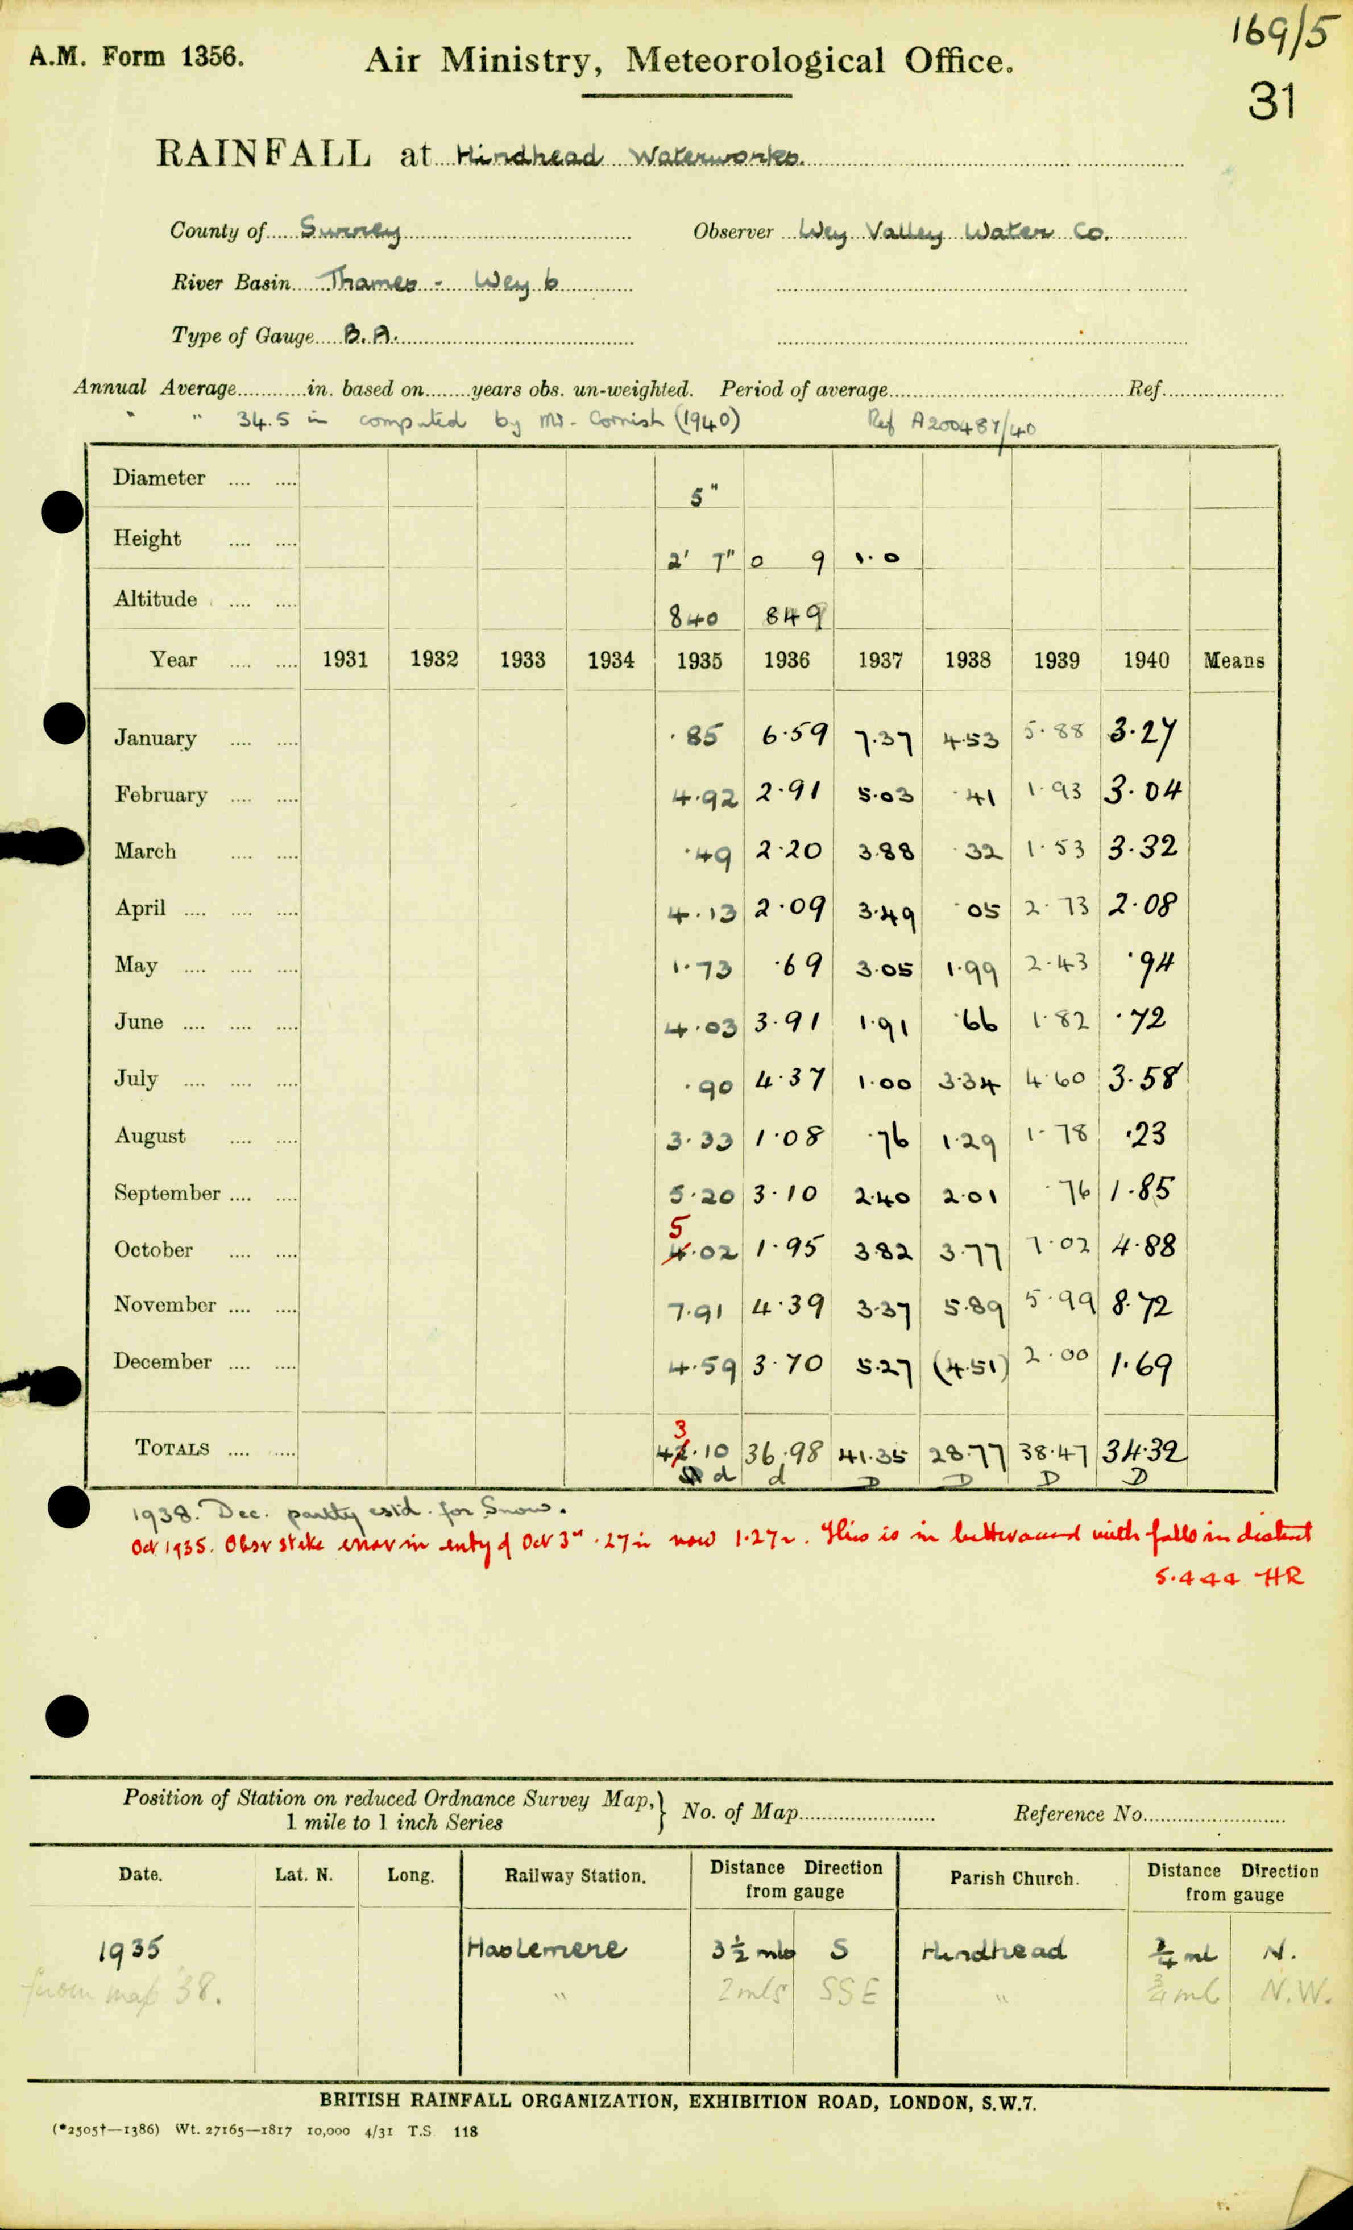 169/5
A.M. Form 1356. Air Ministry, Meteorological Office.
31
RAINFALL at Hindhead Waterworks.
County of Surrey Observer Wey Valley Water Co.
River Basin Thames - Wey 6
Type of Gauge B.A.
Annual Average in. based on years obs. un-weighted. Period of average Ref.
" " 34.5 in computed by Mr. Cornish (1940) Ref A200487/40
Diameter 5"
Height 2' 7" 0 9 1.0
Altitude 840 849
Year 1931 1932 1933 1934 1935 1936 1937 1938 1939 1940 Means
January .85 6.59 7.37 4.53 5.88 3.27
February 4.92 2.91 5.03 .41 1.93 3.04
March .49 2.20 3.88 .32 1.53 3.32
April 4.13 2.09 3.49 .05 2.73 2.08
May 1.73 .69 3.05 1.99 2.43 .94
June 4.03 3.91 1.91 .66 1.82 .72
July .90 4.37 1.00 3.34 4.60 3.58
August 3.33 1.08 .76 1.29 1.78 .23
September 5.20 3.10 2.40 2.01 .76 1.85
5
October 4.02 1.95 3.82 3.77 7.02 4.88
November 7.91 4.39 3.37 5.89 5.99 8.72
December 4.59 3.70 5.27 (4.51) 2.00 1.69
3
TOTALS 42.10 36.98 41.35 28.77 38.47 34.32
d d D D D D
1938. Dec. partly estd. for Snow.
Oct 1935. Obsr states error in entry of Oct 3rd .27in now 1.27in. This is in better accord with falls in district
5.4.44 HR
Position of Station on reduced Ordnance Survey Map, No. of Map Reference No.
1 mile to 1 inch Series
Date. Lat. N. Long. Railway Station. Distance Direction from gauge Parish Church. Distance Direction from gauge
1935 Haslemere 3½ mls S Hindhead ¾ ml N.
from map '38. " 2 mls SSE " ¾ ml N.W.
BRITISH RAINFALL ORGANIZATION, EXHIBITION ROAD, LONDON, S.W.7.
(*2505†—1386) Wt. 27165—1817 10,000 4/31 T.S. 118